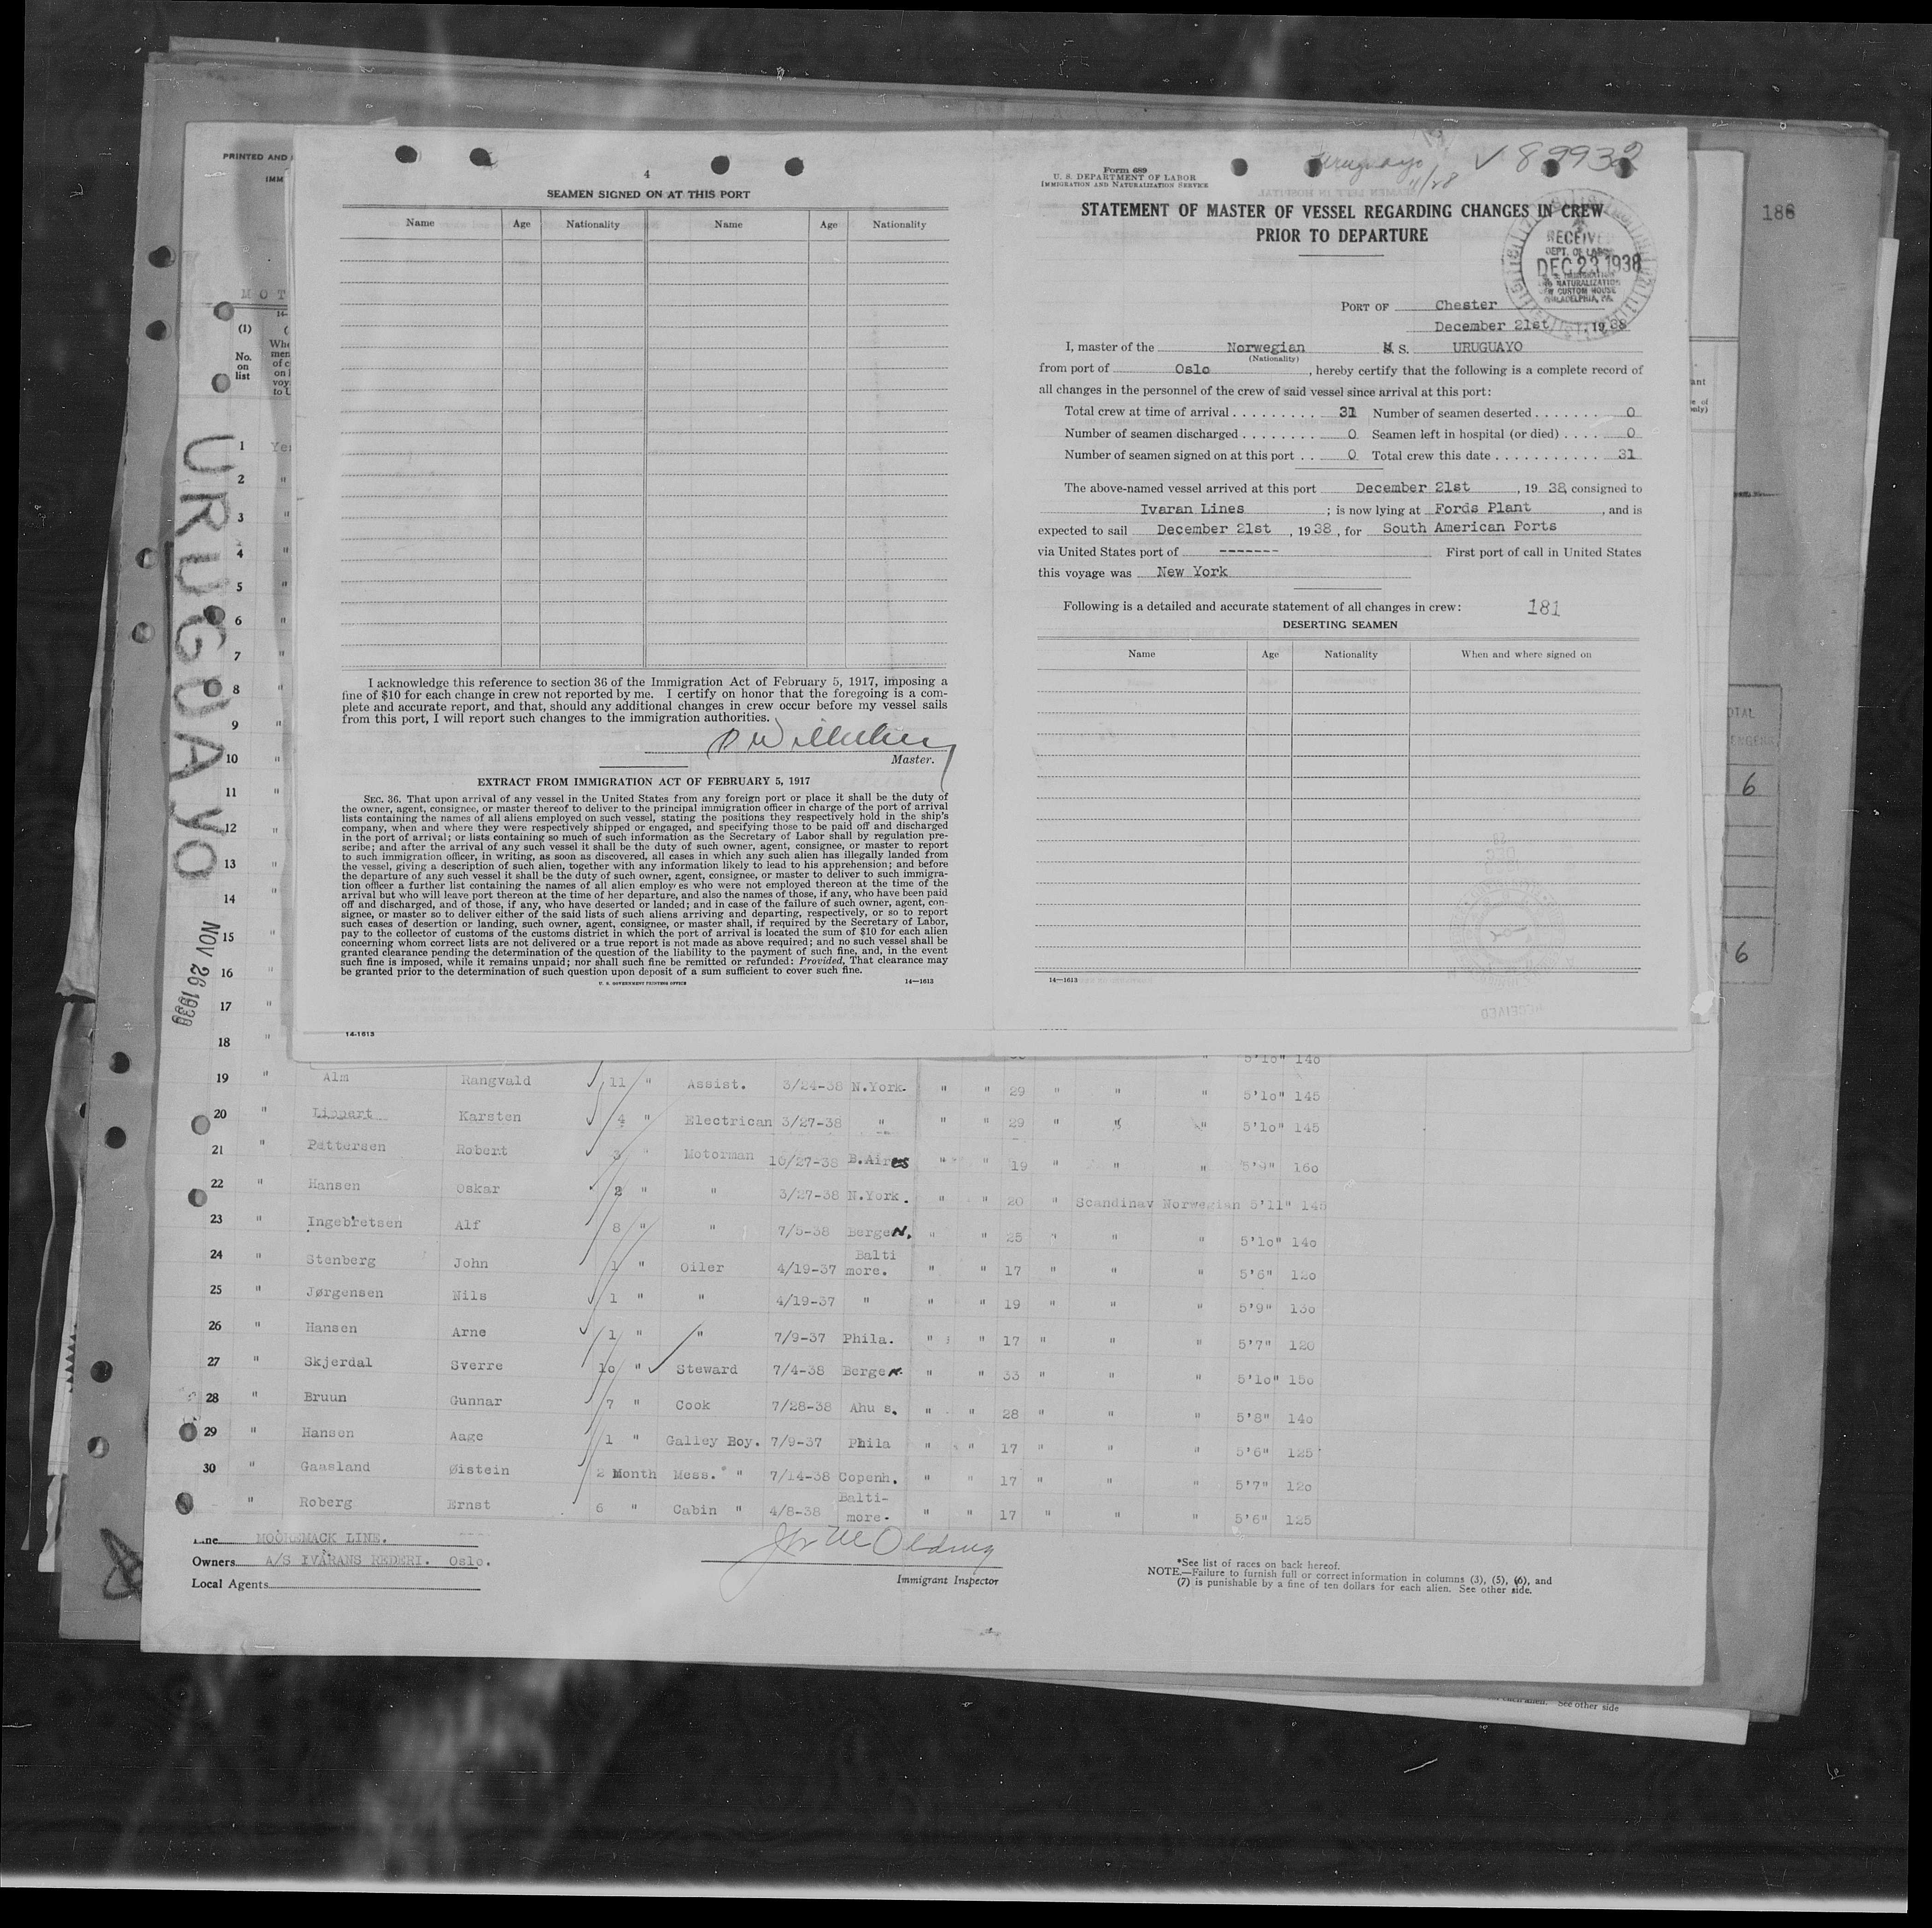 PRINTED AND
IMM
4
SEAMEN SIGNED ON AT THIS PORT
Name Age Nationality Name Age Nationality
I acknowledge this reference to section 36 of the Immigration Act of February 5, 1917, imposing a
fine of $10 for each change in crew not reported by me. I certify on honor that the foregoing is a com-
plete and accurate report, and that, should any additional changes in crew occur before my vessel sails
from this port, I will report such changes to the immigration authorities.
Master.
EXTRACT FROM IMMIGRATION ACT OF FEBRUARY 5, 1917
SEC. 36. That upon arrival of any vessel in the United States from any foreign port or place it shall be the duty of
the owner, agent, consignee, or master thereof to deliver to the principal immigration officer in charge of the port of arrival
lists containing the names of all aliens employed on such vessel, stating the positions they respectively hold in the ship's
company, when and where they were respectively shipped or engaged, and specifying those to be paid off and discharged
in the port of arrival; or lists containing so much of such information as the Secretary of Labor shall by regulation pre-
scribe; and after the arrival of any such vessel it shall be the duty of such owner, agent, consignee, or master to report
to such immigration officer, in writing, as soon as discovered, all cases in which any such alien has illegally landed from
the vessel, giving a description of such alien, together with any information likely to lead to his apprehension; and before
the departure of any such vessel it shall be the duty of such owner, agent, consignee, or master to deliver to such immigra-
tion officer a further list containing the names of all alien employes who were not employed thereon at the time of the
arrival but who will leave port thereon at the time of her departure, and also the names of those, if any, who have been paid
off and discharged, and of those, if any, who have deserted or landed; and in case of the failure of such owner, agent, con-
signee, or master so to deliver either of the said lists of such aliens arriving and departing, respectively, or so to report
such cases of desertion or landing, such owner, agent, consignee, or master shall, if required by the Secretary of Labor,
pay to the collector of customs of the customs district in which the port of arrival is located the sum of $10 for each alien
concerning whom correct lists are not delivered or a true report is not made as above required; and no such vessel shall be
granted clearance pending the determination of the question of the liability to the payment of such fine, and, in the event
such fine is imposed, while it remains unpaid; nor shall such fine be remitted or refunded: Provided, That clearance may
be granted prior to the determination of such question upon deposit of a sum sufficient to cover such fine.
U. S. GOVERNMENT PRINTING OFFICE 14—1613
14-1613
Form 689
U. S. DEPARTMENT OF LABOR
IMMIGRATION AND NATURALIZATION SERVICE
Uruguayo
11/28
✓ 89932
STATEMENT OF MASTER OF VESSEL REGARDING CHANGES IN CREW
PRIOR TO DEPARTURE
RECEIVED
DEPT. OF LABOR
DEC 23 1938
NATURALIZATION
NEW CUSTOM HOUSE
PHILADELPHIA, PA.
PORT OF Chester
December 21st, 1938
I, master of the Norwegian M. S. URUGUAYO
(Nationality)
from port of Oslo, hereby certify that the following is a complete record of
all changes in the personnel of the crew of said vessel since arrival at this port:
Total crew at time of arrival . . . . . . . . . 31 Number of seamen deserted . . . . . . . 0
Number of seamen discharged . . . . . . . . 0 Seamen left in hospital (or died) . . . . 0
Number of seamen signed on at this port . . 0 Total crew this date . . . . . . . . . . . 31
The above-named vessel arrived at this port December 21st, 19 38, consigned to
Ivaran Lines ; is now lying at Fords Plant, and is
expected to sail December 21st, 19 38, for South American Ports
via United States port of ------- First port of call in United States
this voyage was New York
Following is a detailed and accurate statement of all changes in crew: 181
DESERTING SEAMEN
Name Age Nationality When and where signed on
14—1613
186
URUGUAYO
NOV 26 1938
M O T
(1)
No.
on
list
1 Yes
2 "
3 "
4 "
5 "
6 "
7 "
8 "
9 "
10 "
11 "
12 "
13 "
14 "
15 "
16 "
17 "
18 " 5'10" 140
19 " Alm Rangvald 11 " Assist. 3/24-38 N.York. " " 29 " " " 5'10" 145
20 " Lippert Karsten 4 " Electrican 3/27-38 " " " 29 " " " 5'10" 145
21 " Pettersen Robert 3 " Motorman 10/27-38 B.Aires " " 19 " " " 5'9" 160
22 " Hansen Oskar 2 " " 3/27-38 N.York. " " 20 " Scandinav Norwegian 5'11" 145
23 " Ingebretsen Alf 8 " " 7/5-38 Bergen. " " 25 " " " 5'10" 140
24 " Stenberg John 1 " Oiler 4/19-37 Balti more. " " 17 " " " 5'6" 120
25 " Jørgensen Nils 1 " " 4/19-37 " " " 19 " " " 5'9" 130
26 " Hansen Arne 1 " " 7/9-37 Phila. " " 17 " " " 5'7" 120
27 " Skjerdal Sverre 10 " Steward 7/4-38 Bergen. " " 33 " " " 5'10" 150
28 " Bruun Gunnar 7 " Cook 7/28-38 Ahu s. " " 28 " " " 5'8" 140
29 " Hansen Aage 1 " Galley Boy. 7/9-37 Phila " " 17 " " " 5'6" 125
30 " Gaasland Øistein 2 Month Mess. " 7/14-38 Copenh. " " 17 " " " 5'7" 120
" Roberg Ernst 6 " Cabin " 4/8-38 Balti- more. " " 17 " " " 5'6" 125
Line MOOREMACK LINE.
Owners A/S IVARANS REDERI. Oslo.
Local Agents
Immigrant Inspector
*See list of races on back hereof.
NOTE.—Failure to furnish full or correct information in columns (3), (5), (6), and
(7) is punishable by a fine of ten dollars for each alien. See other side.
See other side
6
6